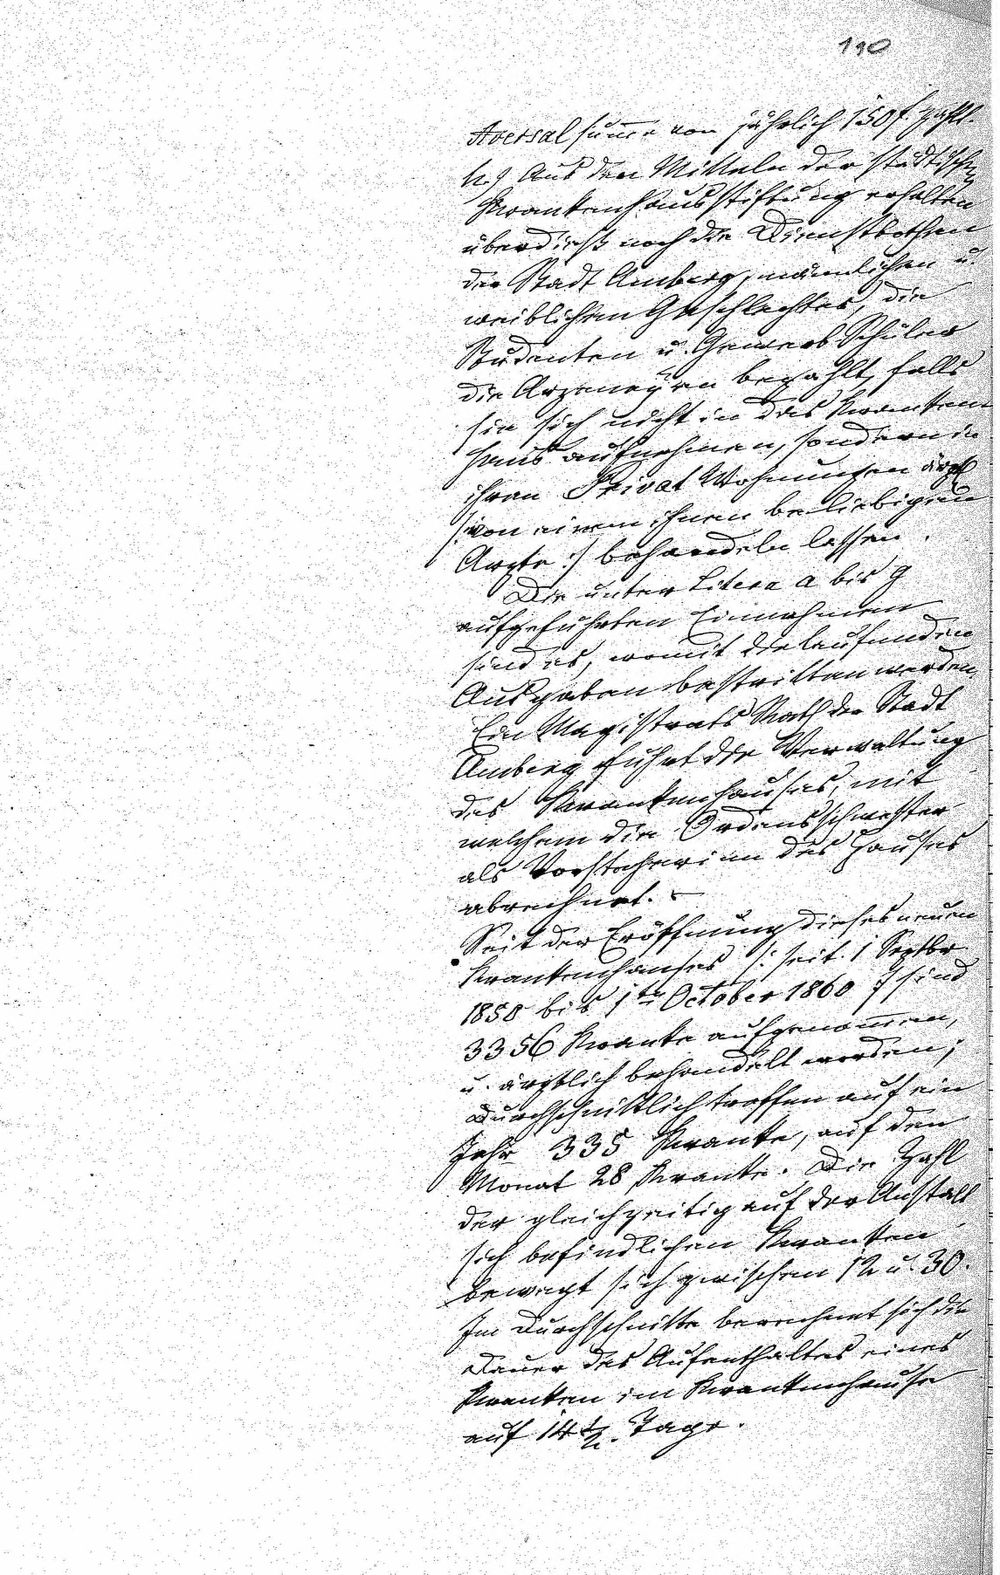 110
Aversal summe von jährlich 150 f. zahlt.
h.) Aus den Mitteln der städtischen
Krankenhausstiftung erhalten
überdieß noch die Dienstbothen
der Stadt Amberg, männlichen u.
weiblichen Geschlechtes, die
Studenten u. Gewerbschüler
die Arzneyen bezahlt, falls
sie sich nicht in das Kranken
haus aufnehmen, sondern in
ihren Privat Wohnungen ärztl
/: von einem ihnen beliebigen
Arzte :/ behandeln lassen.
Die unter Litera a bis g
aufgeführten Einnahmen
sind es, womit die laufenden
Ausgaben bestritten werden.
Ein Magistrats Rath der Stadt
Amberg führt die Verwaltung
des Krankenhauses, mit
welchem die Ordensschwester
als Vorsteherinn des Hauses
abrechnet. -
Seit der Eröffnung dieses neuen
Krankenhauses /: seit 1 Septbr
1850 bis 1ten October 1860 :/ sind
3356 Kranke aufgenommen,
u. ärztlich behandelt worden;
Durchschnittlich treffen auf ein
Jahr 335 Kranke, auf den
Monat 28 Kranke. Die Zahl
der gleichzeitig auf der Anstalt
sich befindlichen Kranken
bewegt sich zwischen 12 u. 30.
Im Durchschnitte berechnet sich die
Dauer des Aufenthaltes eines
Kranken im Krankenhause
auf 14 1/2 Tage.